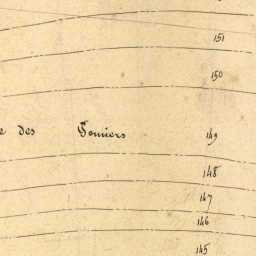 151
150
e des Somiers 149
148
147
146
145